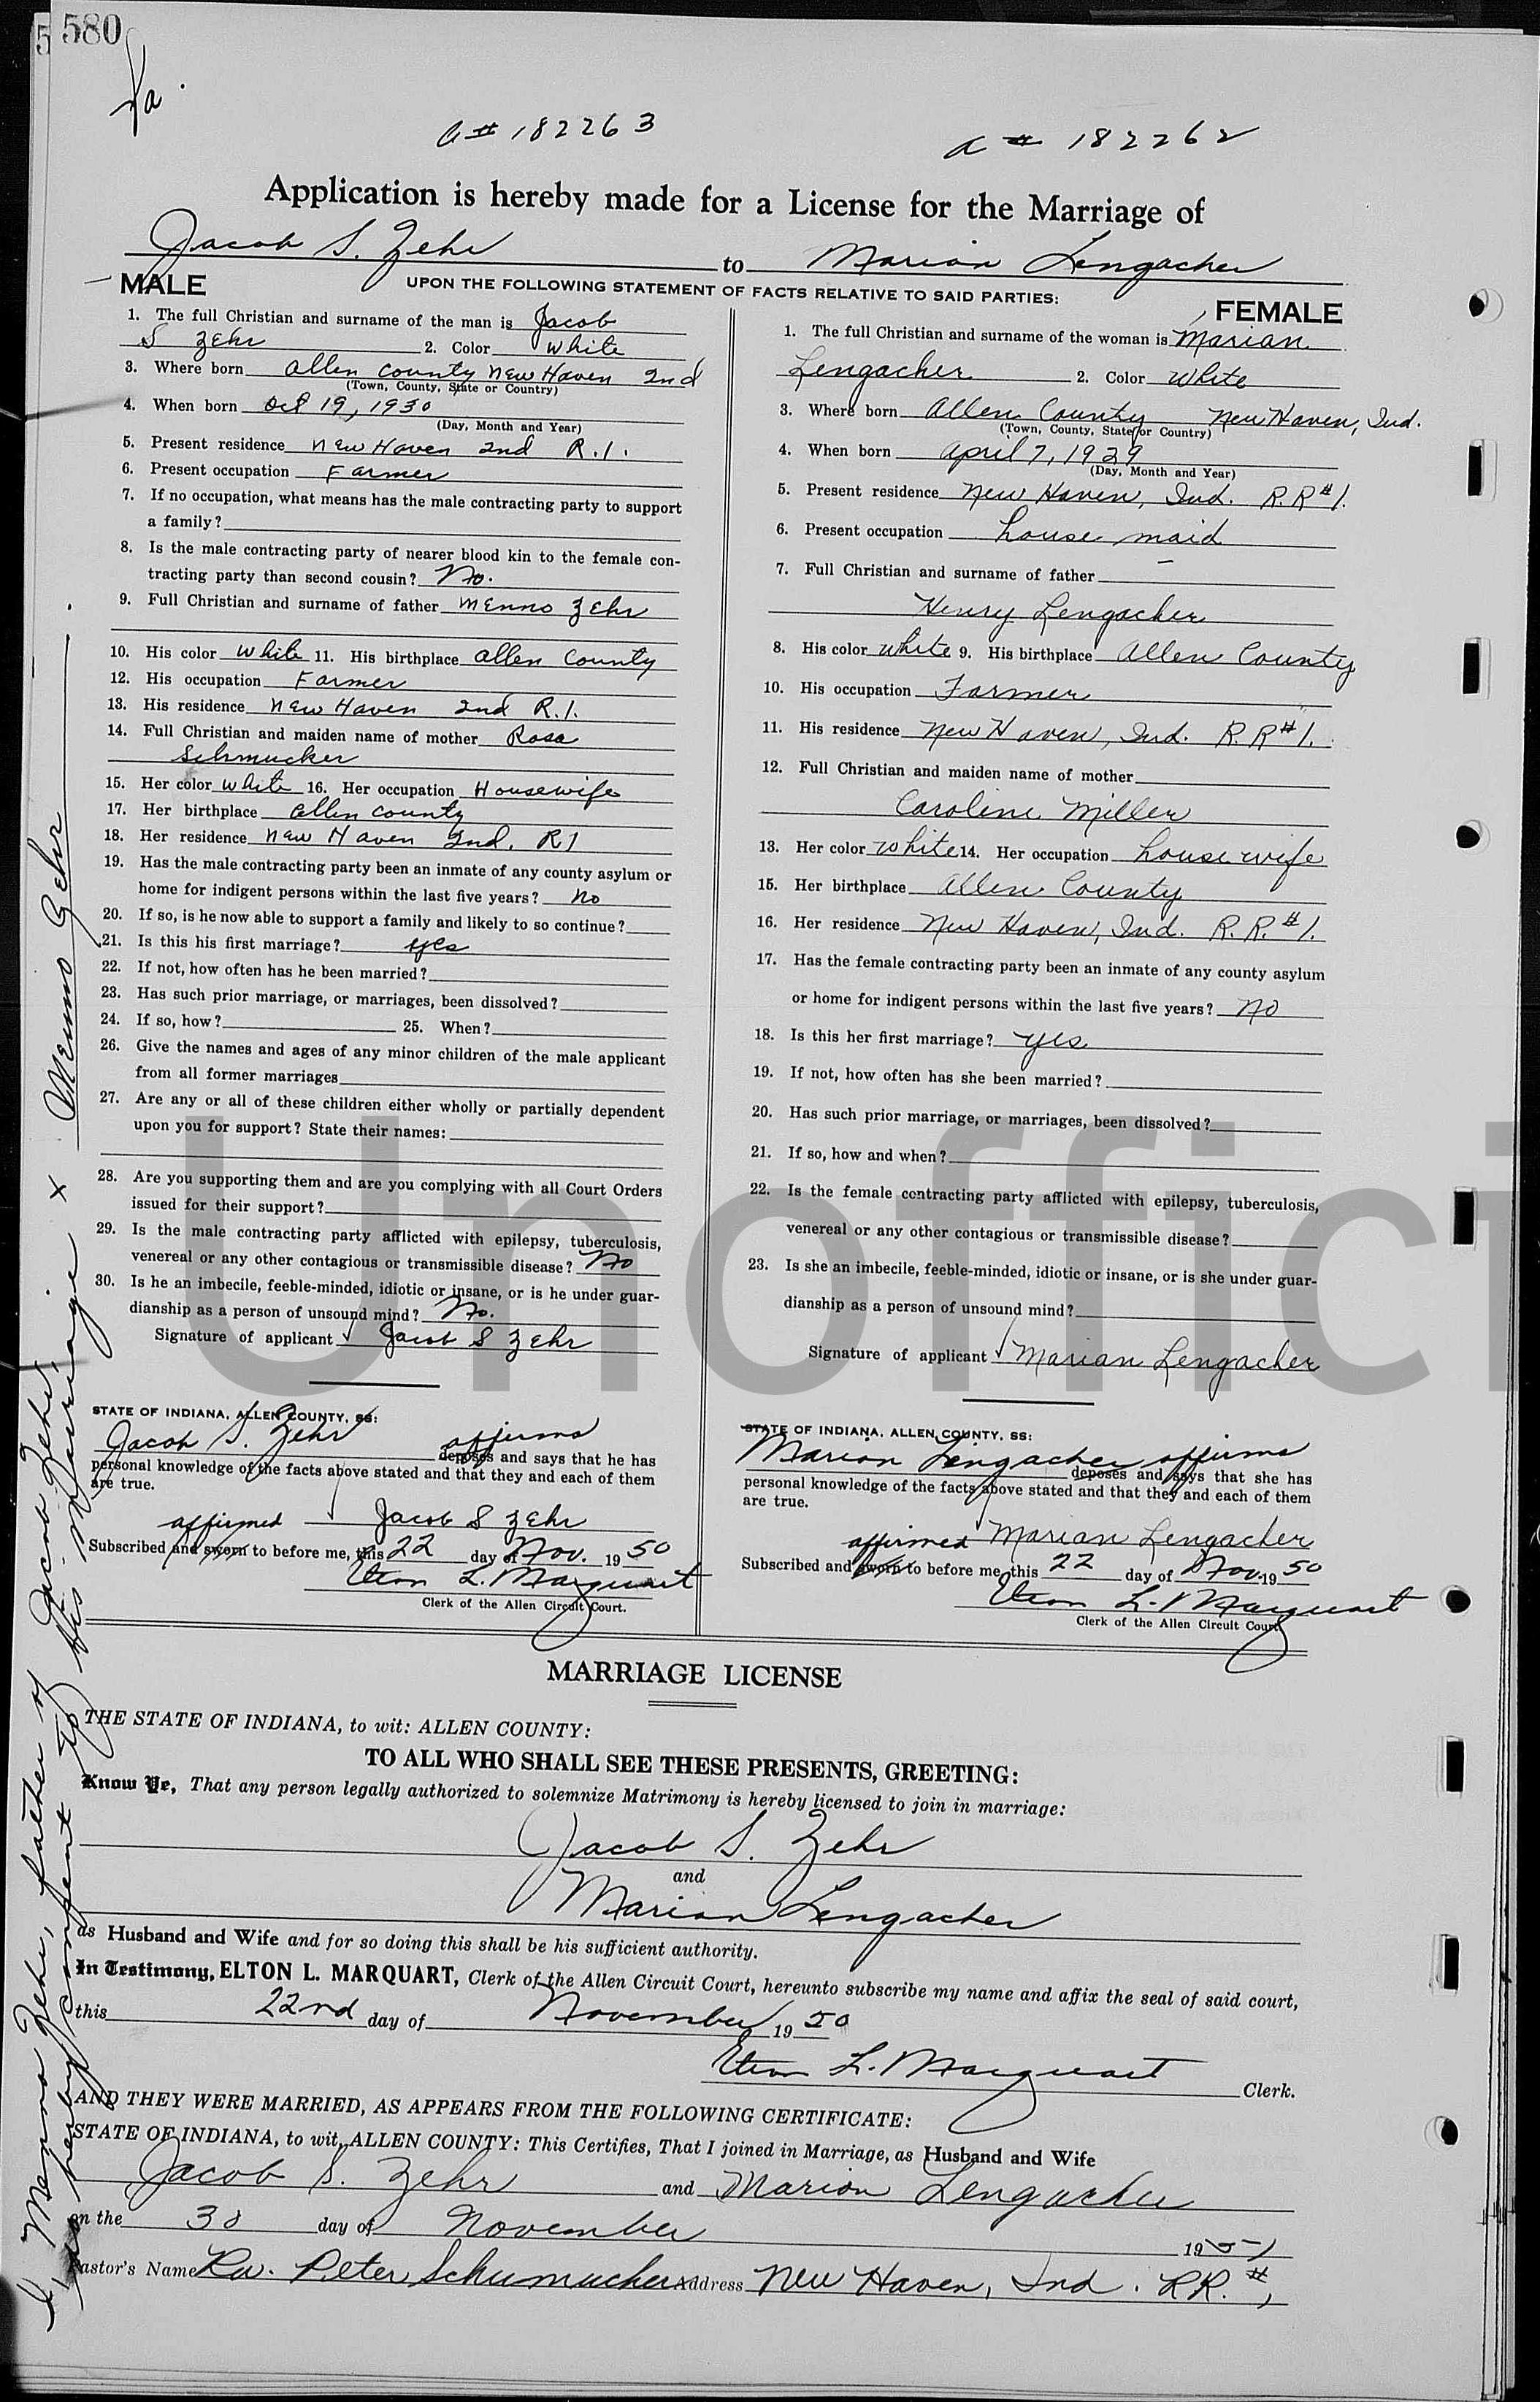 580
a# 182263
a# 182262
Application is hereby made for a License for the Marriage of
Jacob S. Zehr to Marian Lengacher
UPON THE FOLLOWING STATEMENT OF FACTS RELATIVE TO SAID PARTIES:
MALE
1. The full Christian and surname of the man is Jacob
S Zehr 2. Color white
3. Where born Allen County New Haven Ind
(Town, County, State or Country)
4. When born Oct 19, 1930
(Day, Month and Year)
5. Present residence New Haven Ind R.1.
6. Present occupation Farmer
7. If no occupation, what means has the male contracting party to support
a family?
8. Is the male contracting party of nearer blood kin to the female con-
tracting party than second cousin? No.
9. Full Christian and surname of father Menno Zehr
10. His color white 11. His birthplace Allen County
12. His occupation Farmer
13. His residence New Haven Ind R.1.
14. Full Christian and maiden name of mother Rosa
Schmucker
15. Her color white 16. Her occupation Housewife
17. Her birthplace Allen County
18. Her residence New Haven Ind. R1
19. Has the male contracting party been an inmate of any county asylum or
home for indigent persons within the last five years? No
20. If so, is he now able to support a family and likely to so continue?
21. Is this his first marriage? yes
22. If not, how often has he been married?
23. Has such prior marriage, or marriages, been dissolved?
24. If so, how? 25. When?
26. Give the names and ages of any minor children of the male applicant
from all former marriages
27. Are any or all of these children either wholly or partially dependent
upon you for support? State their names:
28. Are you supporting them and are you complying with all Court Orders
issued for their support?
29. Is the male contracting party afflicted with epilepsy, tuberculosis,
venereal or any other contagious or transmissible disease? No
30. Is he an imbecile, feeble-minded, idiotic or insane, or is he under guar-
dianship as a person of unsound mind? No.
Signature of applicant Jacob S Zehr
STATE OF INDIANA, ALLEN COUNTY, SS:
affirms
Jacob S. Zehr deposes and says that he has
personal knowledge of the facts above stated and that they and each of them
are true.
affirmed Jacob S Zehr
Subscribed and sworn to before me, this 22 day of Nov. 1950
Elton L. Marquart
Clerk of the Allen Circuit Court.
FEMALE
1. The full Christian and surname of the woman is Marian
Lengacher 2. Color White
3. Where born Allen County New Haven, Ind.
(Town, County, State or Country)
4. When born April 7, 1929
(Day, Month and Year)
5. Present residence New Haven, Ind. R.R#1.
6. Present occupation house maid
7. Full Christian and surname of father
Henry Lengacher
8. His color white 9. His birthplace Allen County
10. His occupation Farmer
11. His residence New Haven, Ind. R.R#1.
12. Full Christian and maiden name of mother
Caroline Miller
13. Her color white 14. Her occupation house wife
15. Her birthplace Allen County
16. Her residence New Haven, Ind. R.R.#1.
17. Has the female contracting party been an inmate of any county asylum
or home for indigent persons within the last five years? No
18. Is this her first marriage? yes
19. If not, how often has she been married?
20. Has such prior marriage, or marriages, been dissolved?
21. If so, how and when?
22. Is the female contracting party afflicted with epilepsy, tuberculosis,
venereal or any other contagious or transmissible disease?
23. Is she an imbecile, feeble-minded, idiotic or insane, or is she under guar-
dianship as a person of unsound mind?
Signature of applicant Marian Lengacher
STATE OF INDIANA, ALLEN COUNTY, SS:
Marian Lengacher affirms
deposes and says that she has
personal knowledge of the facts above stated and that they and each of them
are true.
affirmed Marian Lengacher
Subscribed and sworn to before me, this 22 day of Nov. 1950
Elton L. Marquart
Clerk of the Allen Circuit Court
MARRIAGE LICENSE
THE STATE OF INDIANA, to wit: ALLEN COUNTY:
TO ALL WHO SHALL SEE THESE PRESENTS, GREETING:
Know Ye, That any person legally authorized to solemnize Matrimony is hereby licensed to join in marriage:
Jacob S. Zehr
and
Marian Lengacher
as Husband and Wife and for so doing this shall be his sufficient authority.
In Testimony, ELTON L. MARQUART, Clerk of the Allen Circuit Court, hereunto subscribe my name and affix the seal of said court,
this 22nd day of November 1950
Elton L. Marquart Clerk.
AND THEY WERE MARRIED, AS APPEARS FROM THE FOLLOWING CERTIFICATE:
STATE OF INDIANA, to wit, ALLEN COUNTY: This Certifies, That I joined in Marriage, as Husband and Wife
Jacob S. Zehr and Marion Lengacher
on the 30 day of November 19
Pastor's Name Rev. Peter Schumucker Address New Haven, Ind. RR. #1
I, Menno Zehr, father of Jacob Zehr,
hereby consent to his marriage x Menno Zehr
Unoffici